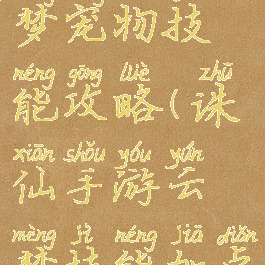 梦宠物技
néng gōng lüè zhū
能攻略(诛
xiān shǒu yóu yún
仙手游云
mèng jì néng jiā diǎn
梦技能加点